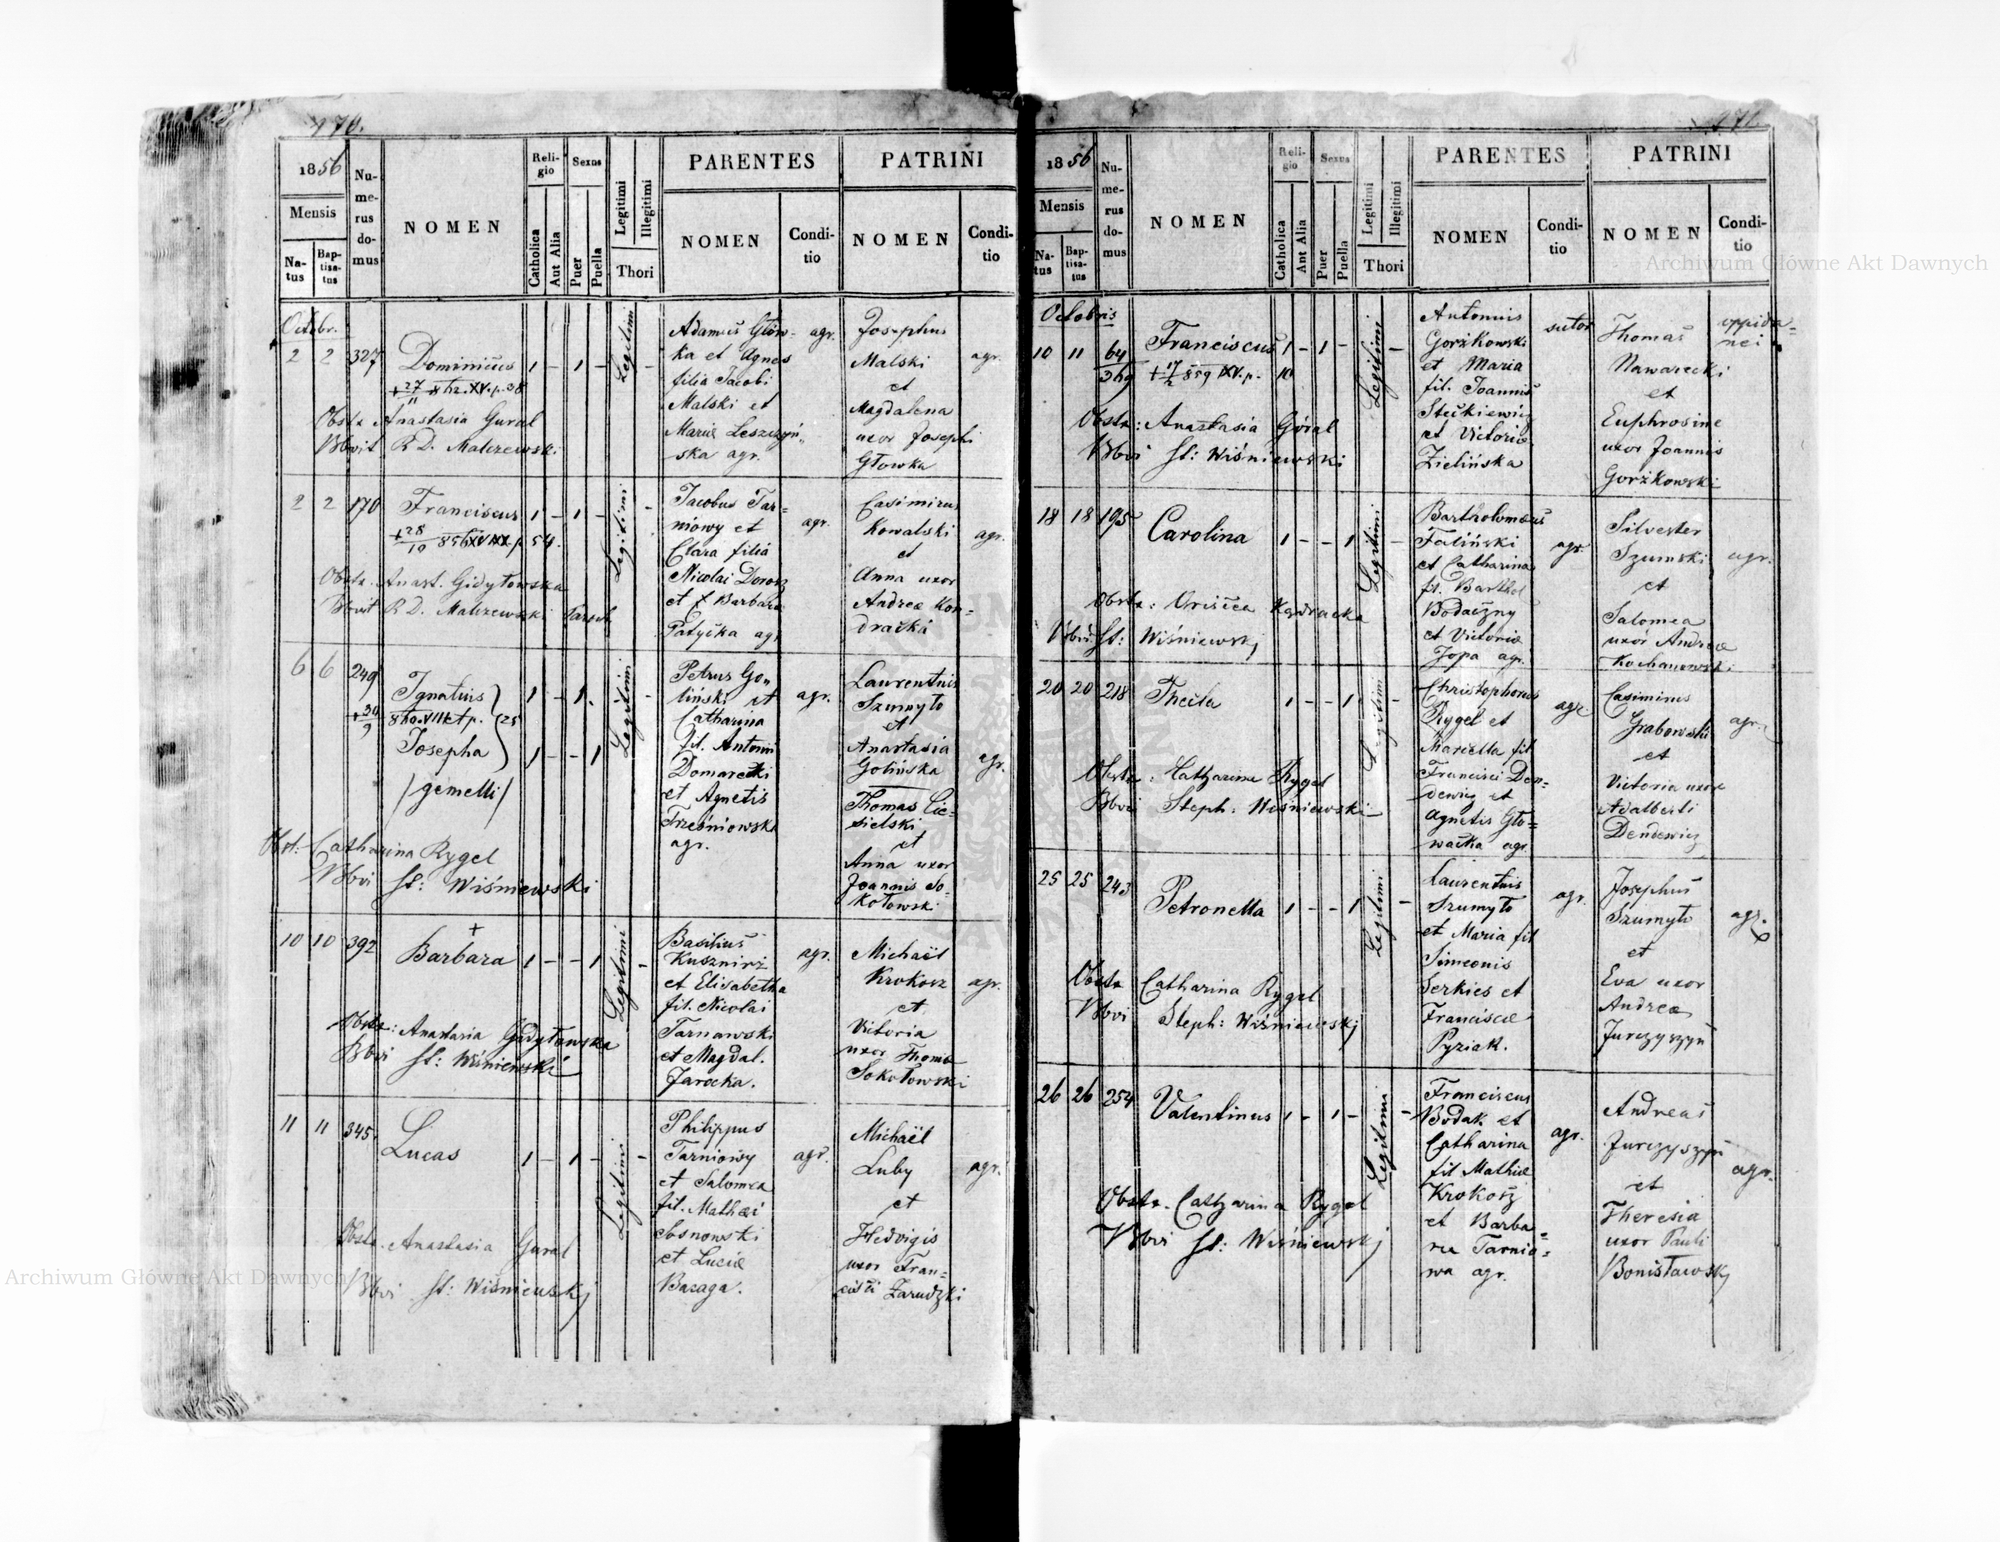 170.
1856
Mensis
Na-
tus
Bap-
tisa-
tus
Nu-
me-
rus
do-
mus
NOMEN
Reli-
gio
Catholica
Aut Alia
Sexus
Puer
Puella
Legitimi
Illegitimi
Thori
PARENTES
NOMEN
Condi-
tio
PATRINI
NOMEN
Condi-
tio
Octobr.
2 2 327 Dominicus 1 - 1 - Legitimi -
Obstx Anastasia Gural
Bbvit R. D. Malczewski
Adamus Głow-
ka et Agnes
filia Jacobi
Malski et
Mariæ Leszczyń-
ska agr.
agr.
Josephus
Malski
et
Magdalena
uxor Josephi
Głowka
agr.
2 2 170 Franciscus 1 - 1 - Legitimi -
Obstx. Anast. Gidyłowska
Bbvit R. D. Malczewski
Jacobus Tar=
niowy et
Clara filia
Nicolai Dorosz
et Barbara
Patyčka agr
agr.
Casimirus
Kowalski
et
Anna uxor
Andreæ Kon=
dračka
agr.
6 6 249 Ignatius 1 - 1 - Legitimi -
Josepha 1 - - 1
/gemelli/
Obst: Catharina Rygel
Bbvi St: Wiśniewski
Petrus Go-
liński et
Catharina
fil. Antonii
Domarecki
et Agnetis
Trześniowska
agr.
agr.
Laurentius
Szumyło
et
Anastasia
Golińska
Thomas Cie=
sielski
et
Anna uxor
Joannis So-
kołowski
agr.
10 10 392 Barbara 1 - - 1 Legitimi -
Obstx: Anastasia Gidyłowska
Bbvi St: Wiśniewski
Basilius
Kusznirz
et Elisabetha
fil. Nicolai
Tarnawski
et Magdal.
Jarocka.
agr.
Michaël
Krokosz
et
Victoria
uxor Thomæ
Sokołowski
agr.
11 11 345 Lucas 1 - 1 - Legitimi -
Obstx. Anastasia Gural
Bbvi St: Wiśniewskj
Philippus
Tarniowy
et Salomea
fil. Mathæi
Sosnowski
et Luciæ
Bacaga.
agr.
Michaël
Luby
et
Hedvigis
uxor Fran=
cisci Zarudzki
agr.
171.
1856
Mensis
Na-
tus
Bap-
tisa-
tus
Nu-
me-
rus
do-
mus
NOMEN
Reli-
gio
Catholica
Aut Alia
Sexus
Puer
Puella
Legitimi
Illegitimi
Thori
PARENTES
NOMEN
Condi-
tio
PATRINI
NOMEN
Condi-
tio
Octobris
10 11 64 Franciscus 1 - 1 - Legitimi -
369
Obstx: Anastasia Góral
Bbvi St: Wiśniewski
Antonius
Gorżkowski
et Maria
fil. Joannis
Stečkiewicz
et Victoriæ
Zielińska
sutor
Thomas
Nawarecki
et
Euphrosine
uxor Joannis
Gorżkowski
oppida=
nei
18 18 195 Carolina 1 - - 1 Legitimi -
Obstx: Ursisca Kędracka
Bbvi St: Wiśniewskj
Bartholomæus
Faliński
et Catharina
fil. Barthol
Bodačzny
et Victoriæ
Jopa agr.
agr.
Silvester
Szumski
et
Salomea
uxor Andreæ
Kochanowski
agr.
20 20 218 Thecla 1 - - 1 Legitimi -
Obstx: Catharina Rygel
Bbvi Steph: Wiśniewski
Christophorus
Rygel et
Marcella fil
Francisci Den-
dewicz et
Agnetis Gło=
wačka agr.
agr.
Casimirus
Grabowski
et
Victoria uxor
Adalberti
Dendewicz
agr.
25 25 243 Petronella 1 - - 1 Legitimi -
Obstx Catharina Rygel
Bbvi Steph: Wiśniewskj
Laurentius
Szumyło
et Maria fil
Simeonis
Serkies et
Franciscæ
Pyziak.
agr.
Josephus
Szumyło
et
Eva uxor
Andreæ
Jurczyszyn
agr.
26 26 254 Valentinus 1 - 1 - Legitimi -
Obstx. Catharina Rygel
Bbvi St: Wiśniewskj
Franciscus
Bodak et
Catharina
fil Mathiæ
Krokosz
et Barba=
ræ Tarnio=
wa agr.
agr.
Andreas
Jurczyszyn
et
Theresia
uxor Pauli
Bonisławskj
agr.
Archiwum Główne Akt Dawnych
Archiwum Główne Akt Dawnych